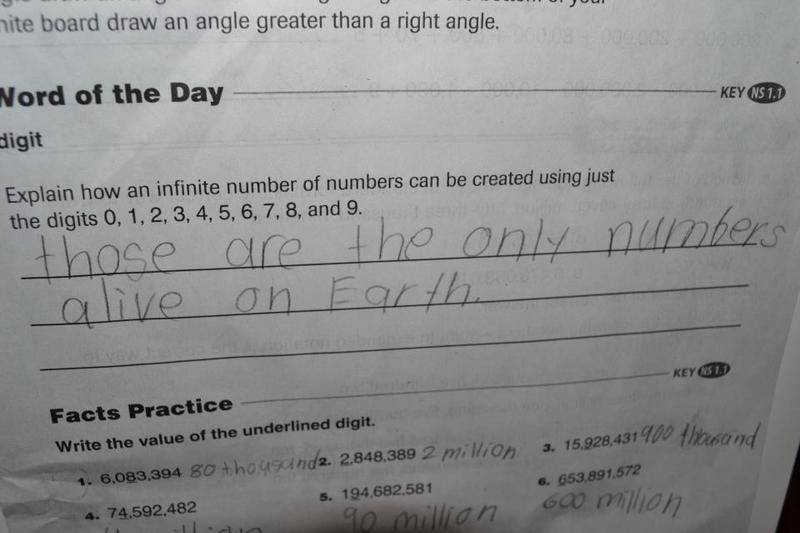 white board draw an angle greater than a right angle.
Word of the Day KEY NS 1.1
digit
Explain how an infinite number of numbers can be created using just
the digits 0, 1, 2, 3, 4, 5, 6, 7, 8, and 9.
those are the only numbers
alive on Earth.
KEY NS 1.1
Facts Practice
Write the value of the underlined digit.
1. 6,083,394 80 thousand 2. 2,848,389 2 million 3. 15,928,431 900 thousand
4. 74,592,482 5. 194,682,581 90 million 6. 653,891,572 600 million